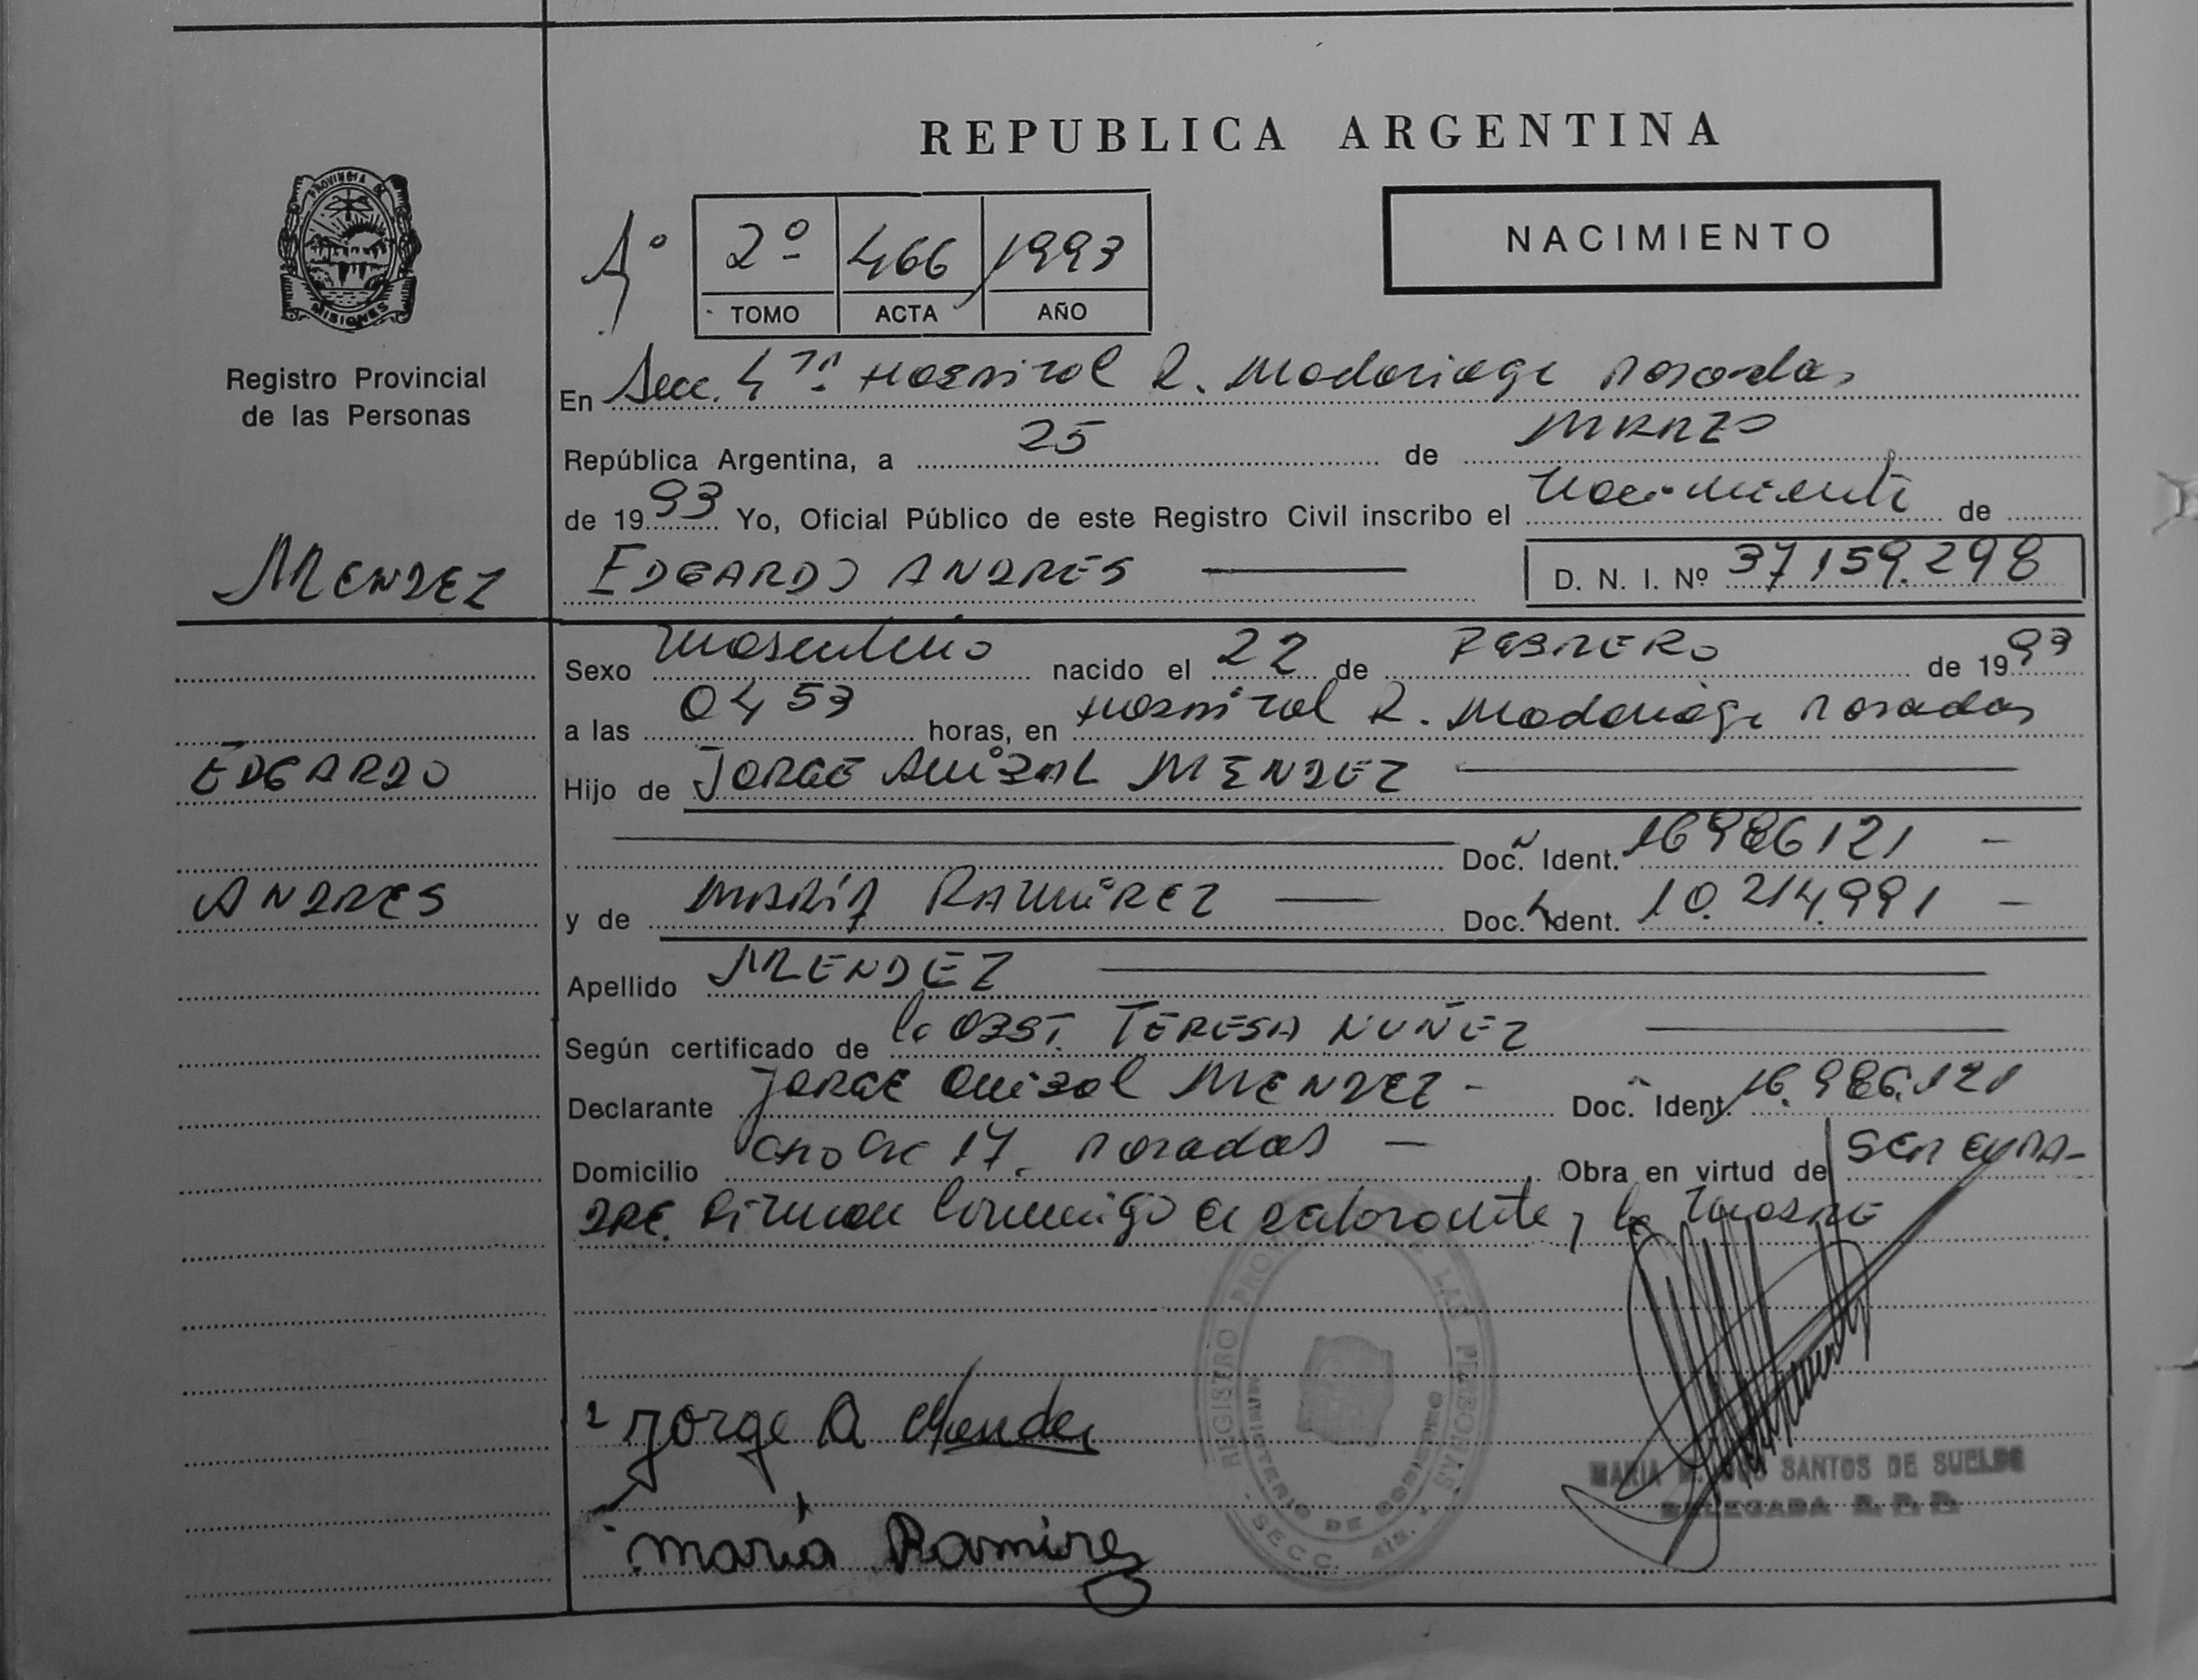 REPUBLICA ARGENTINA
PROVINCIA DE
MISIONES
Registro Provincial
de las Personas
Aº
2º 466 1993
TOMO ACTA AÑO
NACIMIENTO
En Secc. 4ta Hospital R. Madariaga Posadas
República Argentina, a 25 de MARZO
de 1993 Yo, Oficial Público de este Registro Civil inscribo el nacimiento de
MENDEZ
EDGARDO ANDRES
D. N. I. Nº 37159.298
Sexo masculino nacido el 22 de FEBRERO de 1993
a las 04 53 horas, en Hospital R. Madariaga Posadas
EDGARDO
Hijo de JORGE ANIBAL MENDEZ
Doc. Ident. 16986121
ANDRES
y de MARÍA RAMIREZ Doc. Ident. 10.214.991
Apellido MENDEZ
Según certificado de la OBST. TERESA NUÑEZ
Declarante JORGE Anibal MENDEZ Doc. Ident. 16.986.121
Domicilio 17. Posadas Obra en virtud de SER EL PA-
DRE. Firman conmigo el declarante y la madre
REGISTRO LAS PERSONAS
MINISTERIO DE GOBIERNO
SECC. 4ta.
Jorge A Mendez
MARIA SANTOS DE SUELDO
DELEGADA R. P. P.
maría Ramirez